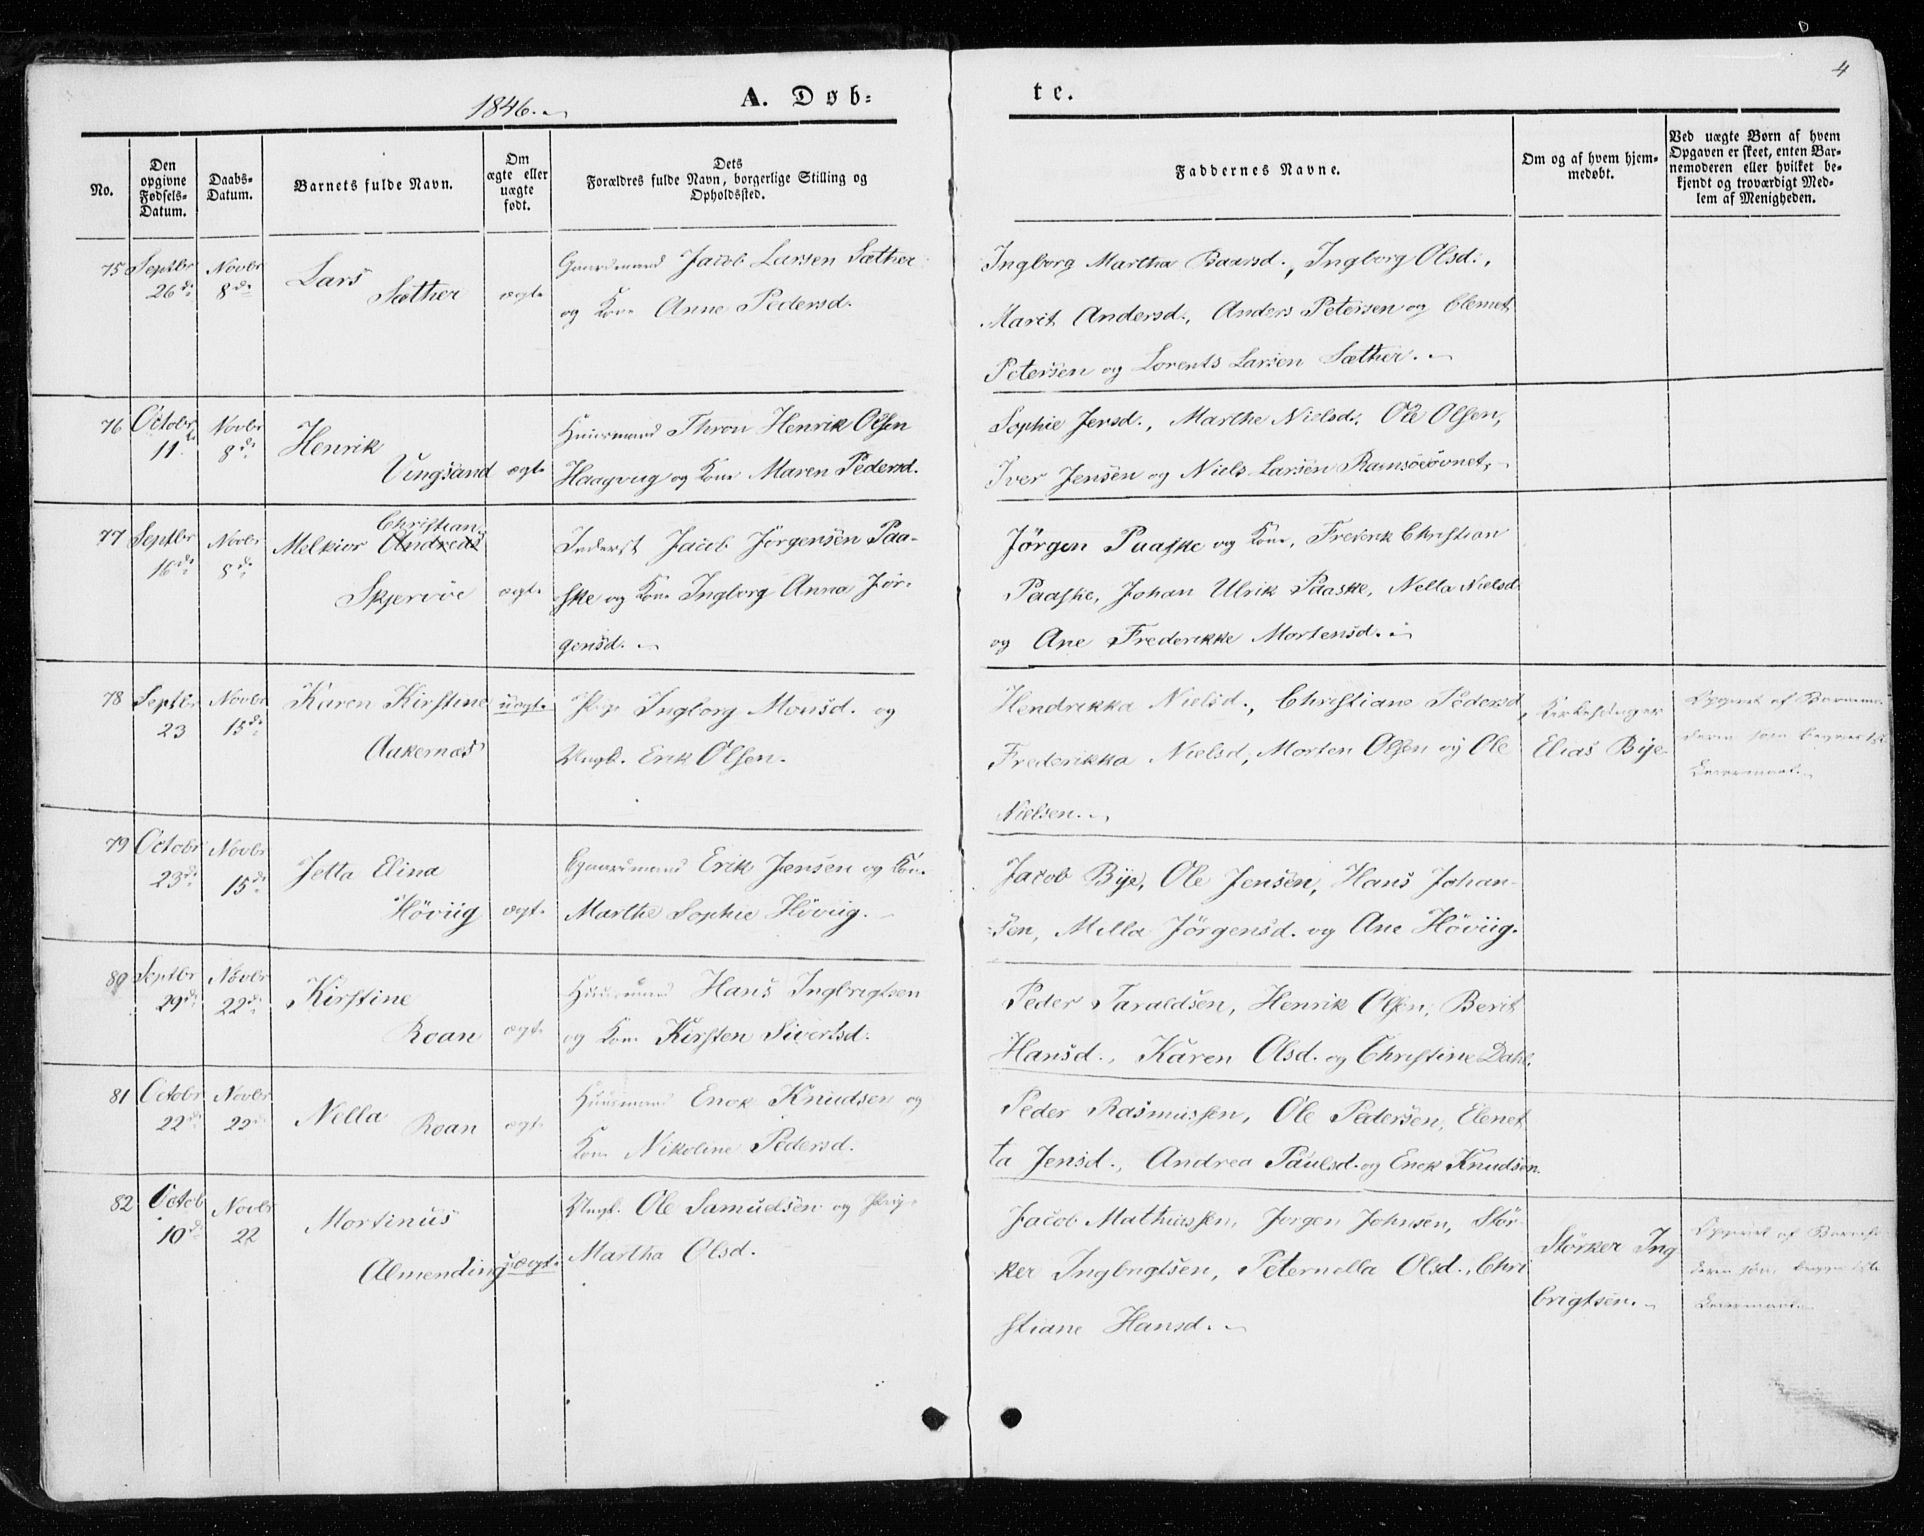 4
1846.
A. Døb=
te.
No.
Den opgivne Fødsels-Datum.
Daabs-Datum.
Barnets fulde Navn.
Om ægte eller uægte født.
Dets Forældres fulde Navn, borgerlige Stilling og Opholdssted.
Faddernes Navne.
Om og af hvem hjem-medøbt.
Ved uægte Børn af hvem Opgaven er skeet, enten Bar-nemoderen eller hvilket be-kjendt og troværdigt Med-lem af Menigheden.
75 Septbr Novbr
26 d. 8 d.
Lars
Sæther ægte
Gaardmand Jacob Larsen Sæther
og Kone Anne Pedersd.
Ingborg Martha Baarsd., Ingborg Olsd.,
Marit Andersd., Anders Petersen og Clemet
Petersen og Lorents Larsen Sæther.
76 Octobr Novbr
11 d. 8 d.
Henrik
Vingsand ægte
Huusmand Thron Henrik Olsen
Haagvug og Kone Maren Pedersd.
Sophie Jensd., Marthe Nielsd., Ole Olsen,
Iver Jensen og Niels Larsen Ramsøeøvnet.
77 Septbr Novbr
16 d. 8 d.
Christian
Melkior Andreas
Skjervøe ægte
Inderst Jacob Jørgensen Paa-
ske og Kone Ingborg Anna Jør-
gensd.
Jørgen Paaske og Kone, Frederik Christian
Paaske, Johan Ulrik Paaske, Nella Nielsd.
og Ane Frederikke Mortensd.
78 Septbr Novbr
23 15 d.
Karen Kirstine uægte
Aakernæs
Pige Ingborg Monsd. og
Ungk. Erik Olsen.
Hendrikka Nielsd., Christiane Pedersd.,
Frederikka Nielsd, Morten Olsen og Ole
Nielsen.
Kirkesanger
Elias Bye
Opgivet af Barnemo-
deren som begges 1ste
Leiermaal.
79 Octobr Novbr
23 d. 15 d.
Jetta Elina
Høviig ægte
Gaardmand Erik Jensen og Kone
Marthe Sophie Høviig.
Jacob Bye, Ole Jensen, Hans Johan-
sen, Mella Jørgensd. og Ane Høviig.
80 Septbr Novbr
29 d. 22 d.
Kirstine
Roan ægte
Huusmand Hans Ingbrigtsen
og Kone Kirsten Sivertsd.
Peder Taraldsen, Henrik Olsen, Berit
Hansd., Karen Olsd. og Christine Dahl.
81 Octobr Novbr
22 d. 22 d.
Nella Roan ægte
Huusmand Enok Knudsen og
Kone Nikoline Pedersd.
Peder Rasmussen, Ole Pedersen, Elenet
ta Jensd., Andrea Paulsd. og Enok Knudsen.
82 Octob Novbr
10 d. 22
Mortinus
Almending uægte
Ungk. Ole Samuelsen og Pige
Martha Olsd.
Jacob Mathiassen, Jørgen Johnsen, Stør-
ker Ingbrigtsen, Peternella Olsd., Chri
stiane Hansd.
Størker Ing
brigtsen.
Opgivet af Barnemo-
deren som begges 1ste
Leiermaal.